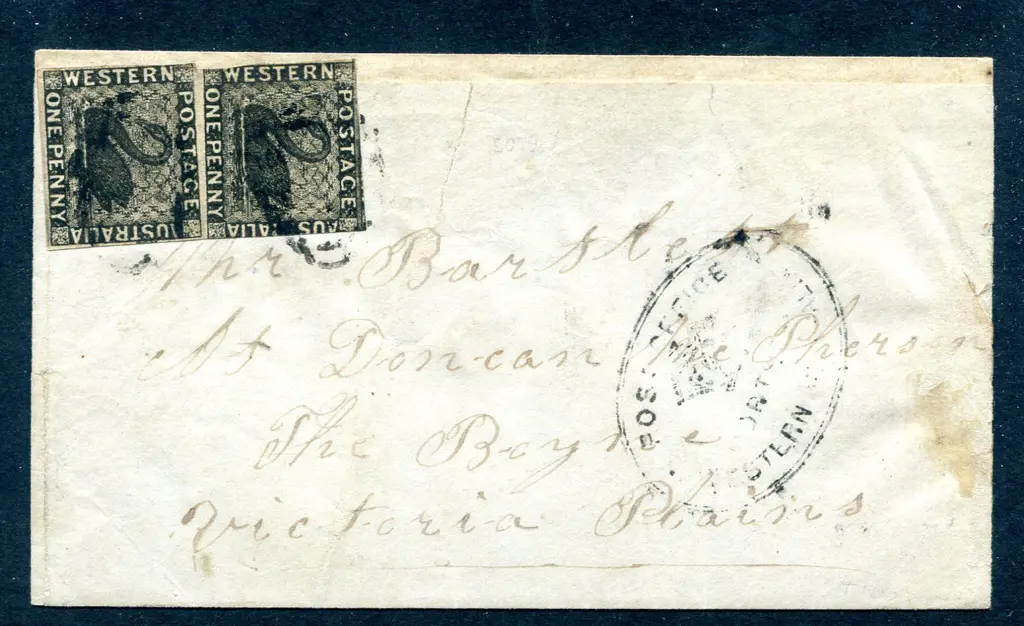 WESTERN
POSTAGE
AUSTRALIA
ONE PENNY
WESTERN
POSTAGE
AUSTRALIA
ONE PENNY
Mr Bartlett
At Doncan Mc Pherson
The Boyne
Victoria Plains
POST OFFICE
WESTERN